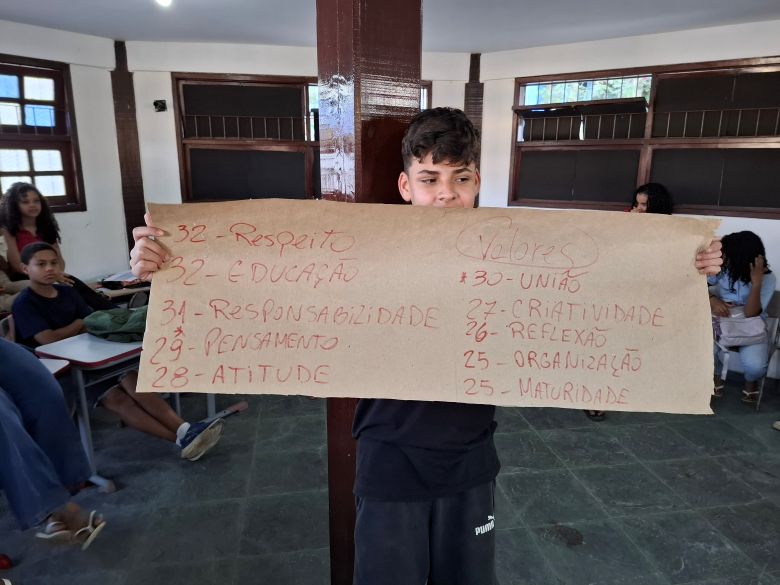 32 - Respeito
32 - EDUCAÇÃO
31 - RESPONSABILIDADE
*29 - PENSAMENTO.
28 - ATITUDE
Valores
*30 - UNIÃO
27 - CRIATIVIDADE
26 - REFLEXÃO
25 - ORGANIZAÇÃO
25 - MATURIDADE
PUMA